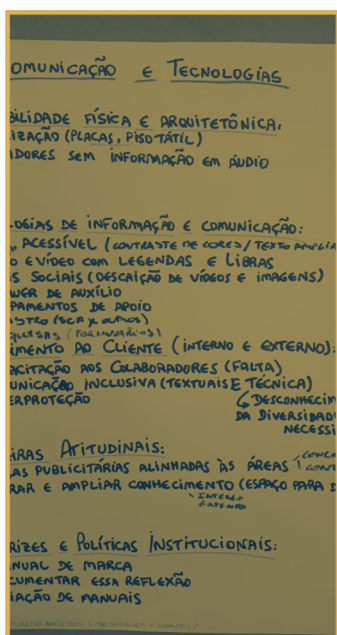 OMUNICAÇÃO E TECNOLOGIAS
BILIDADE FÍSICA E ARQUITETÔNICA:
IZAÇÃO (PLACAS, PISO TÁTIL)
ADORES SEM INFORMAÇÃO EM ÁUDIO
LOGIAS DE INFORMAÇÃO E COMUNICAÇÃO:
ACESSÍVEL (CONTRASTE DE CORES / TEXTO AMPLIA
O E VÍDEO COM LEGENDAS E LIBRAS
S SOCIAIS (DESCRIÇÃO DE VÍDEOS E IMAGENS)
WER DE AUXÍLIO
PAMENTOS DE APOIO
ISTRO
QUISAS (FORMULÁRIOS)
IMENTO AO CLIENTE (INTERNO E EXTERNO):
ACITAÇÃO AOS COLABORADORES (FALTA)
UNICAÇÃO INCLUSIVA (TEXTUAIS E TÉCNICA)
ERPROTEÇÃO
DESCONHECIM
DA DIVERSIDAD
NECESSI
IRAS ATITUDINAIS:
AS PUBLICITÁRIAS ALINHADAS ÀS ÁREAS
RAR E AMPLIAR CONHECIMENTO (ESPAÇO PARA D
INTERNO
EXTERNO
RIZES E POLÍTICAS INSTITUCIONAIS:
NUAL DE MARCA
CUMENTAR ESSA REFLEXÃO
IAÇÃO DE MANUAIS